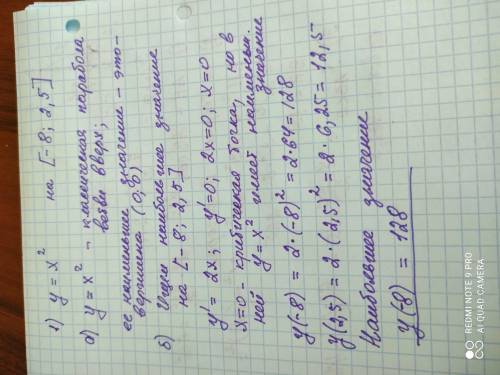 1) y = x² на [-8; 2,5]
а) y = x² - классическая парабола
ветви вверх;
ее наименьшее значение - это -
вершина (0; 0)
б) Ищем наибольшее значение
на [-8; 2,5]
y' = 2x; y' = 0; 2x=0; x=0
x=0 - критическая точка, но в
ней y = x² имеет наименьш.
значение
y(-8) = 2·(-8)² = 2·64 = 128
y(2,5) = 2·(2,5)² = 2·6,25 = 12,5
Наибольшее значение
y(-8) = 128
REDMI NOTE 9 PRO
AI QUAD CAMERA